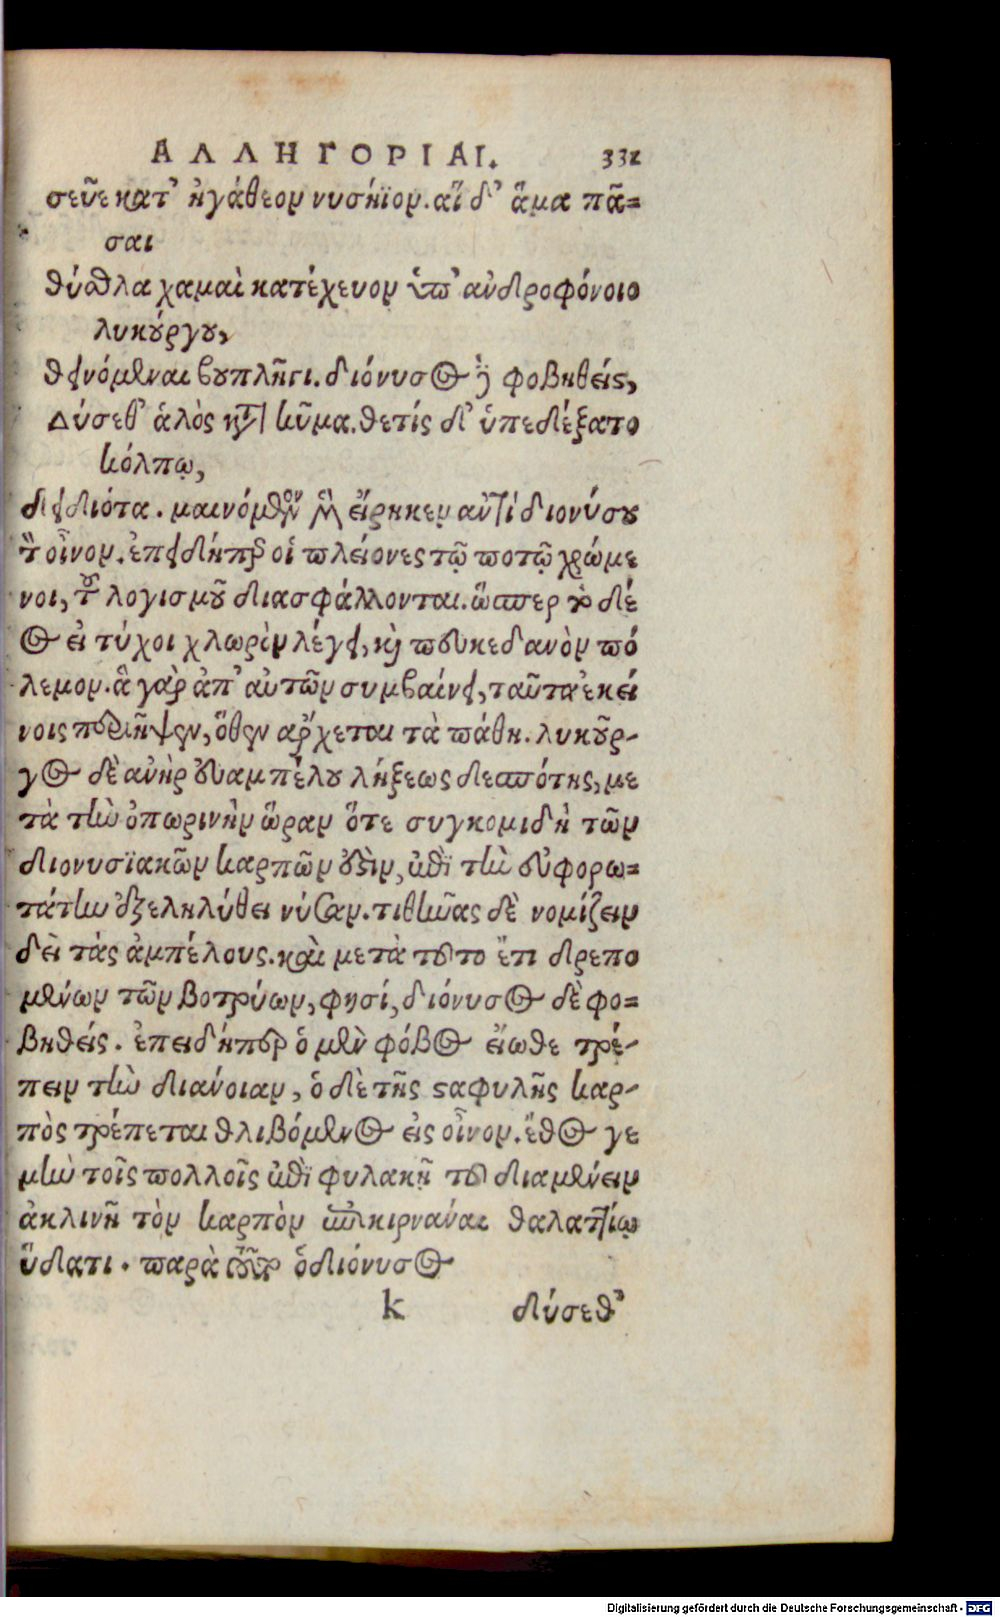 ΑΛΛΗΓΟΡΙΑΙ. 331
σεῦε κατ' ἠγάθεον νυσήϊον. αἳ δ' ἅμα πᾶ=
σαι
θύσθλα χαμαὶ κατέχευον ὑπ' ἀνδροφόνοιο
λυκούργου,
θεινόμεναι βουπλῆγι. διόνυσος δὲ φοβηθεὶς,
Δύσεθ' ἁλὸς κατὰ κῦμα. θετίς δ' ὑπεδέξατο
κόλπῳ,
δειδιότα. μαινόμενον μὲν εἴρηκεν ἀντὶ διονύσου
τὸν οἶνον. ἐπειδήπερ οἱ πλείονες τῷ ποτῷ χρώμε
νοι, τοῦ λογισμοῦ διασφάλλονται. ὥσπερ τὸ δέ
ος εἰ τύχοι χλωρὸν λέγει, καὶ πευκεδανὸν πό
λεμον. ἃ γὰρ ἀπ' αὐτῶν συμβαίνει, ταῦτα ἐκεί
νοις περιῆψεν, ὅθεν ἄρχεται τὰ πάθη. λυκοῦρ-
γος δὲ ἀνὴρ εὐαμπέλου λήξεως δεσπότης, με
τὰ τὴν ὀπωρινὴν ὥραν ὅτε συγκομιδὴ τῶν
διονυσϊακῶν καρπῶν ἐστὶν, ἐπὶ τὴν εὐφορω=
τάτην ἐξεληλύθει νύσσαν. τιθήνας δὲ νομίζειν
δεῖ τὰς ἀμπέλους. καὶ μετὰ τοῦτο ἔτι δρεπο
μένων τῶν βοτρύων, φησί, διόνυσος δὲ φο=
βηθείς. ἐπειδήπερ ὁ μὲν φόβος εἴωθε τρέ-
πειν τὴν διάνοιαν, ὁ δὲ τῆς σταφυλῆς καρ-
πὸς τρέπεται θλιβόμενος εἰς οἶνον. ἔθος γε
μὴν τοῖς πολλοῖς ἐπὶ φυλακῇ τοῦ διαμένειν
ἀκλινῆ τὸν καρπὸν ἐπικιρνάναι θαλαττίῳ
ὕδατι. παρὰ ὁ διόνυσος
k δύσεθ'
Digitalisierung gefördert durch die Deutsche Forschungsgemeinschaft - DFG